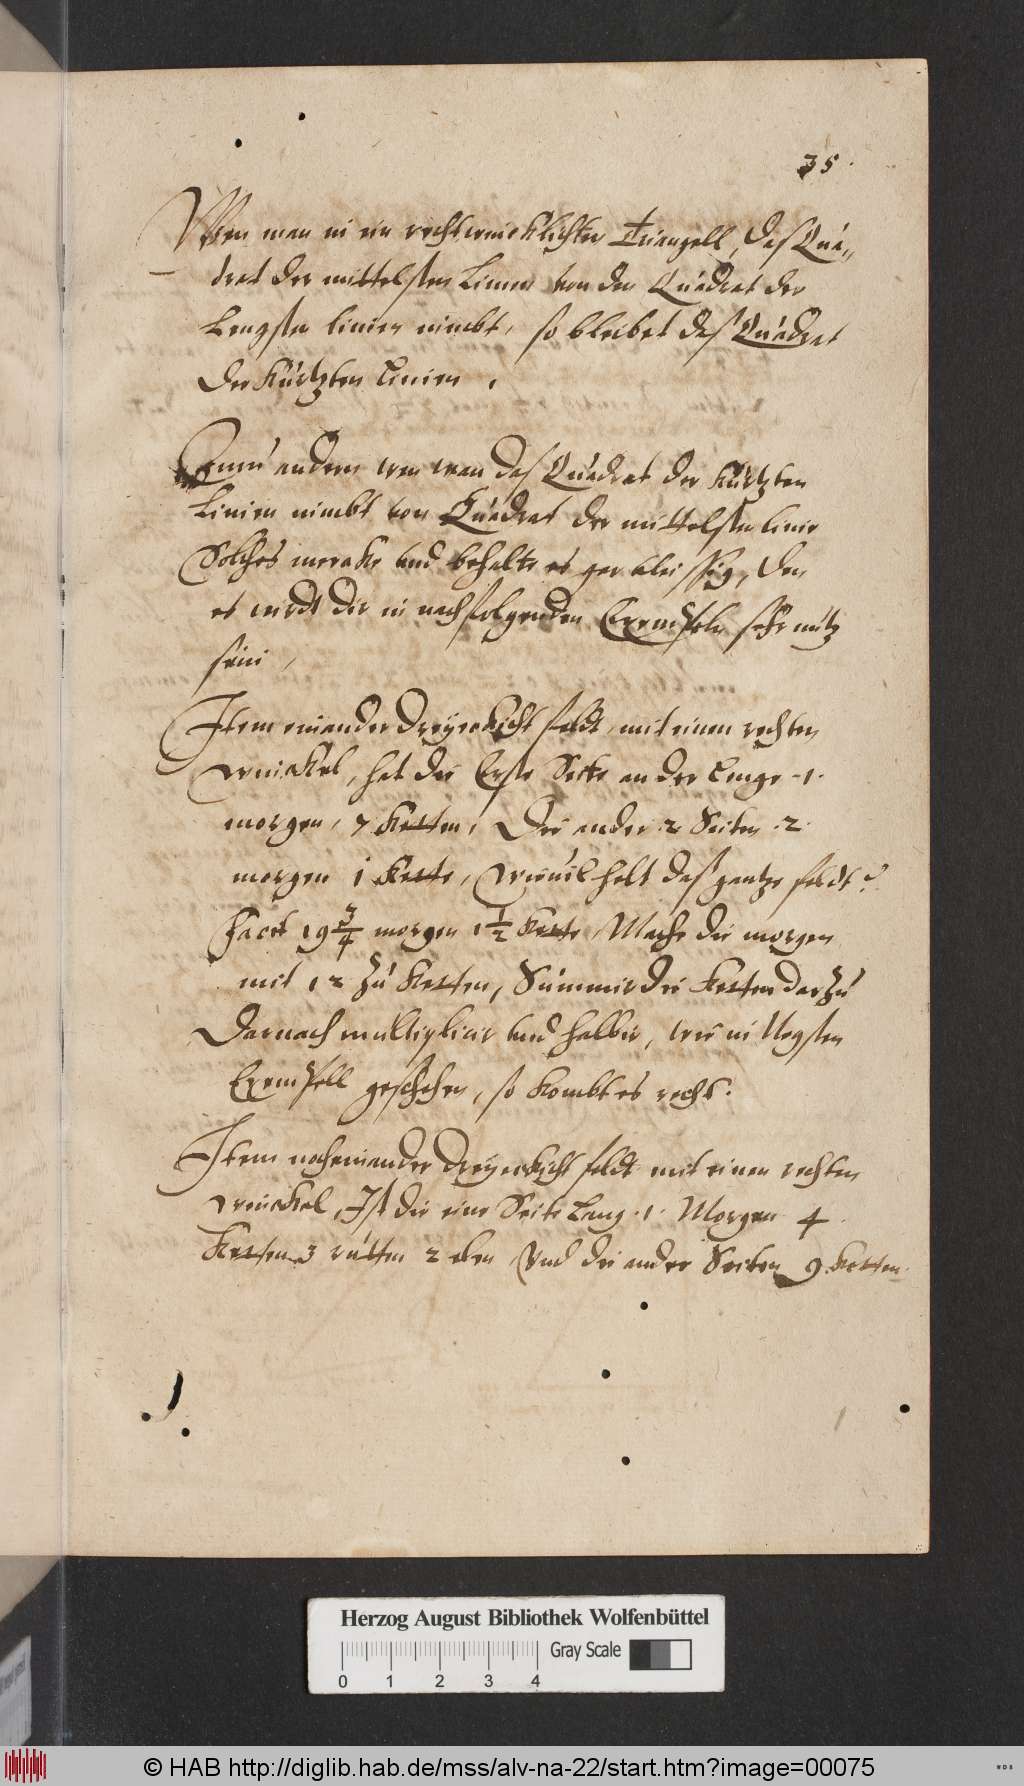 35.
Wen man in ein rechtwincklichter Triangell, das Qua„
drat der mittelsten Linien von den Quadrat der
Lengsten linien nimbt, so bleibet das Quadrat
der Kürtzten Linien,
Zum andern wen man das Quadrat der Kürtzten
Linien nimbt von Quadrat der mittelsten linie
Solches mercke und behalte es gar vleissig, den
es wirdt dir in nachfolgenden Exempeln sehr nütz
sein,
Item ein ander dreyeckicht feldt, mit einen rechten
winckel, hat die Erste Seite an der Lenge .1.
morgen, 7 Ketten, Die ander 2 Seiten .2.
morgen 1 Kette, wieuil helt das gantze feldt?
Facit 19 3/4 morgen 1 1/2 Kette Mache die morgen
mit 12 zu Ketten, Summir die Ketten darzu
Darnach multiplicir und halbir, wie in Negsten
Exempell geschehen, so kombt es recht.
Item noch ein ander dreyeckicht feldt mit einen rechten
winckel, Ist die eine Seite Lang .1. Morgen 4
Ketten 3 rutten 2 elen Und die ander Seiten 9 Ketten
Herzog August Bibliothek Wolfenbüttel
Gray Scale
0 1 2 3 4
© HAB http://diglib.hab.de/mss/alv-na-22/start.htm?image=00075